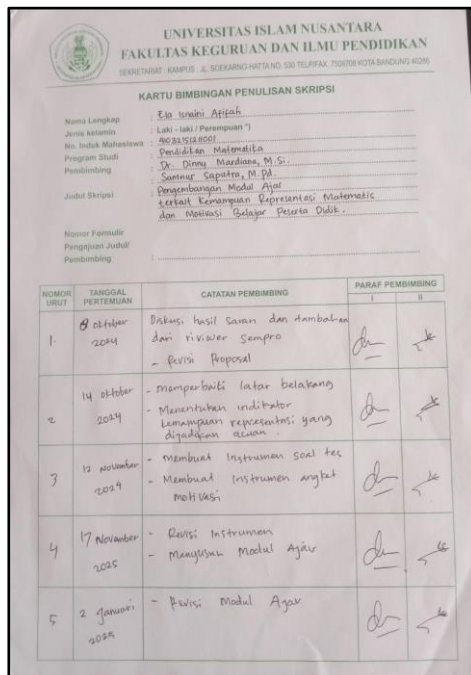 UNIVERSITAS ISLAM NUSANTARA
FAKULTAS KEGURUAN DAN ILMU PENDIDIKAN
SEKRETARIAT : KAMPUS : JL. SOEKARNO-HATTA NO. 530 TELP/FAX. 7509708 KOTA BANDUNG 40286
KARTU BIMBINGAN PENULISAN SKRIPSI
Nama Lengkap : Ela Isnaini Afifah
Jenis kelamin : Laki - laki / Perempuan *)
No. Induk Mahasiswa :
Program Studi : Pendidikan Matematika
Pembimbing : Dr. Dinny Mardiana, M.Si.
Samnur Saputra, M.Pd.
Judul Skripsi : Pengembangan Modul Ajar
terkait Kemampuan Representasi Matematis
dan Motivasi Belajar Peserta Didik.
Nomor Formulir
Pengajuan Judul/
Pembimbing :
NOMOR URUT TANGGAL PERTEMUAN CATATAN PEMBIMBING PARAF PEMBIMBING
I II
1. 8 oktober 2024 Diskusi hasil saran dan tambahan
dari riviwer sempro
- Revisi Proposal
2 14 oktober 2024 - memperbaiki latar belakang
- Menentukan indikator
kemampuan representasi yang
dijadikan acuan.
3 12 November 2024 - Membuat Instrumen soal tes
- Membuat Instrumen angket
motivasi
4 17 November 2025 - Revisi Instrumen
- Menyusun Modul Ajar
5 2 Januari 2025 - Revisi Modul Ajar